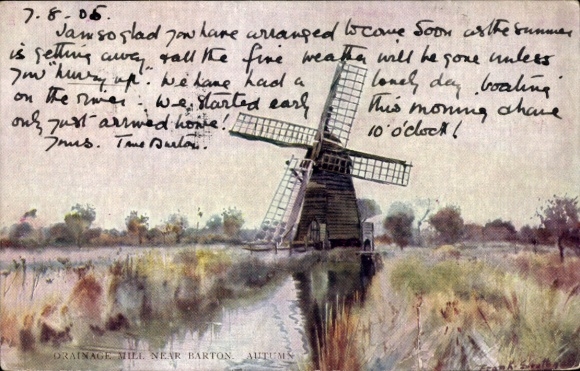 7.8.05.
I am so glad you have arranged to come soon as the summer
is getting away & all the fine weather will be gone unless
you "hurry up". We have had a lovely day boating
on the river - we started early this morning & have
only just arrived home! 10 o'clock!
Yours.
DRAINAGE MILL NEAR BARTON. AUTUMN
Frank